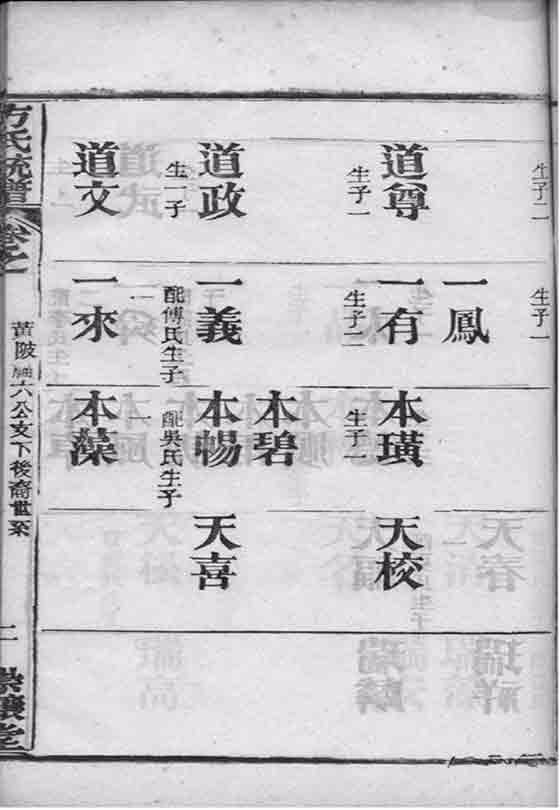 生子二
道尊
生子一
道政
生一子
道文
生子一
一鳳
一有
生子二
一義
配傅氏生子一
一來
本璜
生子一
本碧
本暢
配吳氏生子一
本藻
天校
天喜
方氏統譜
卷之
黃陂 六公支下後裔世系
二
堂